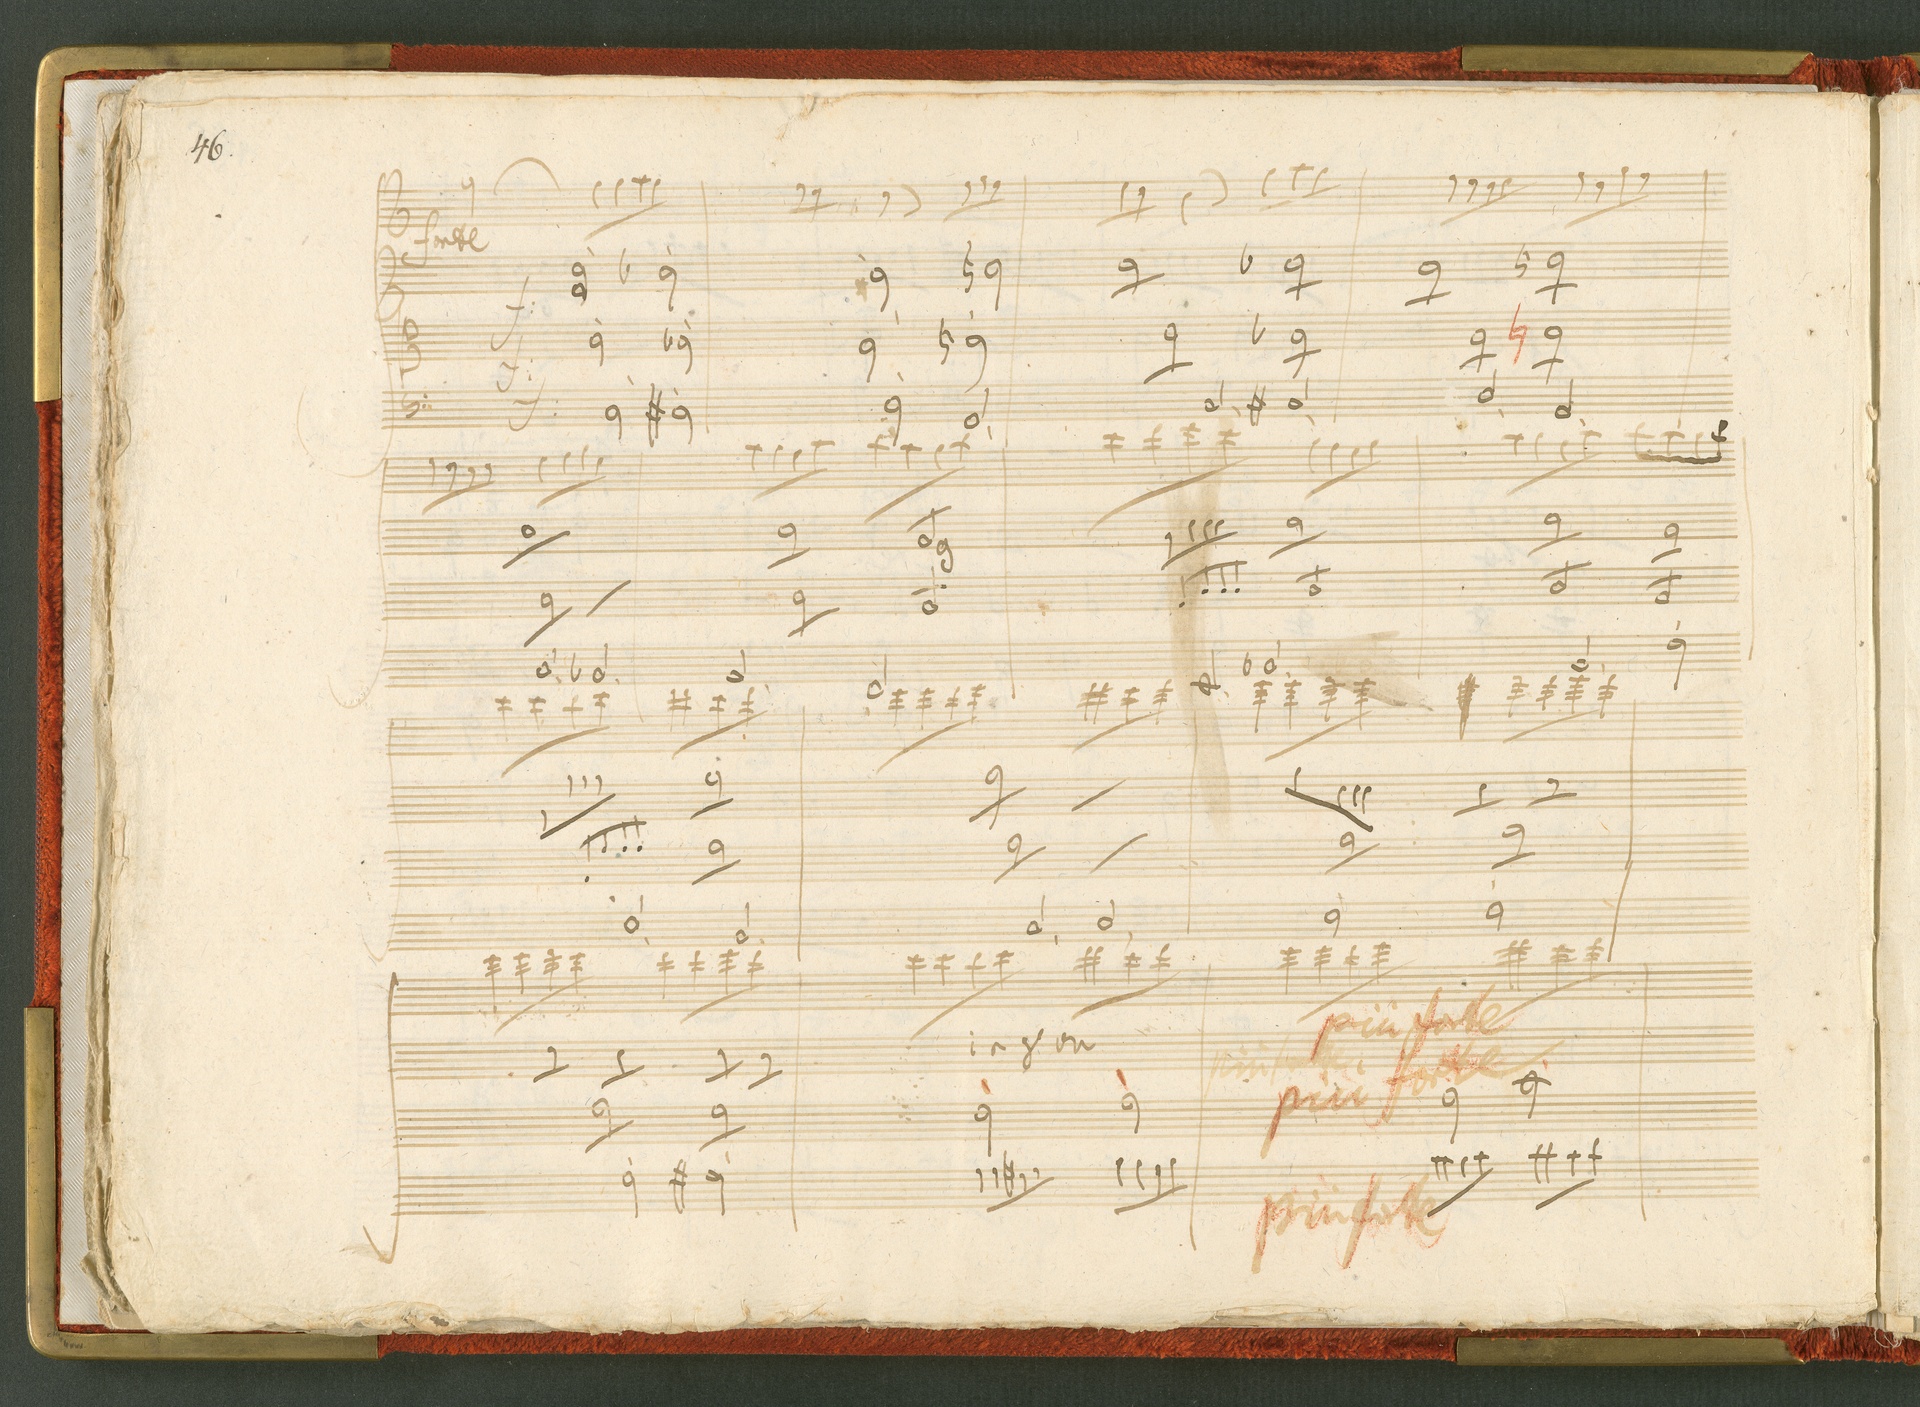 46.
forte
f:
f:
f:
più forte
più forte
più forte
più forte